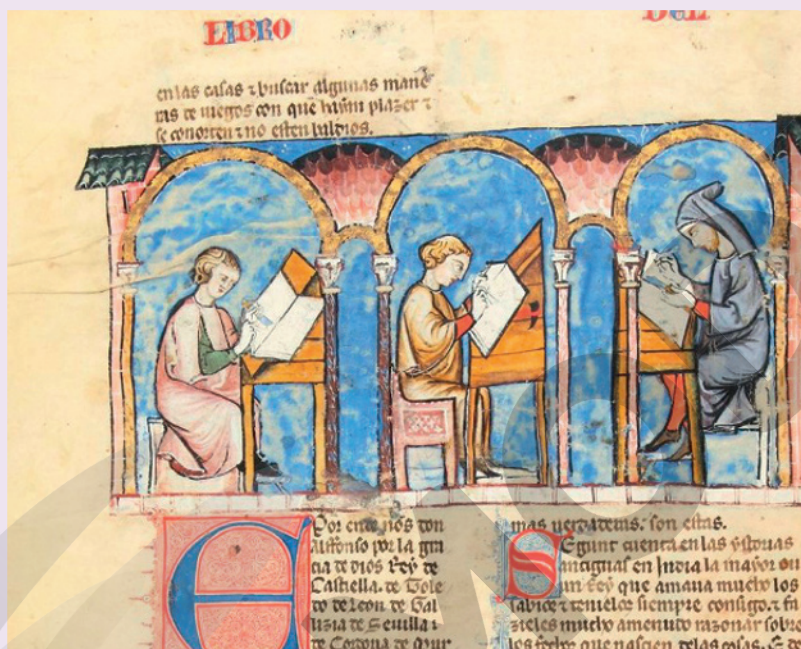 LIBRO DEL
en las casas ⁊ buscar algunas mane
ras de iuegos con que hayan plazer ⁊
se conorten ⁊ no esten baldios.
Por ende nos don
Alffonso por la gra
cia de dios Rey de
Castiella. de Tole
do de leon de Gal
lizia de Seuilla ⁊
de Cordoua de Mur
mas uerdaderas. son estas.
Segunt cuenta en las ystorias
antiguas en India la mayor ou
un Rey que amaua mucho los
sabios ⁊ tenielos siempre consigo. ⁊ fa
zieles mucho amenudo razonar sobre
los fechos que nascien delas cosas. E de